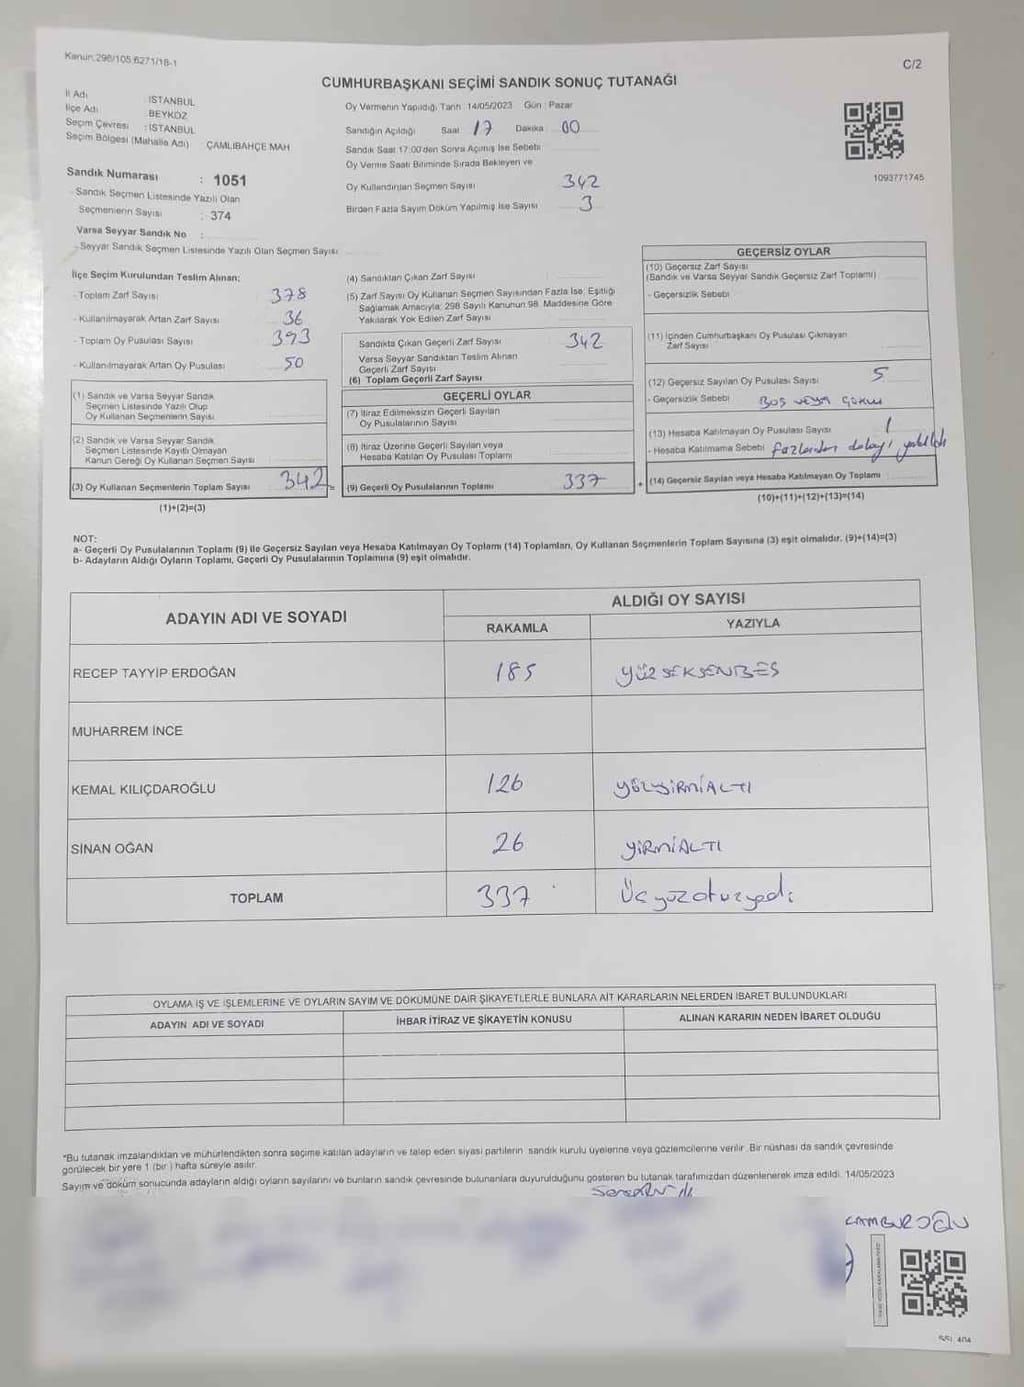 Kanun:298/105,6271/18-1
C/2
CUMHURBAŞKANI SEÇİMİ SANDIK SONUÇ TUTANAĞI
İl Adı İSTANBUL
İlçe Adı BEYKOZ
Seçim Çevresi : İSTANBUL
Seçim Bölgesi (Mahalle Adı) ÇAMLIBAHÇE MAH
Sandık Numarası : 1051
- Sandık Seçmen Listesinde Yazılı Olan
Seçmenlerin Sayısı : 374
Varsa Seyyar Sandık No :
- Seyyar Sandık Seçmen Listesinde Yazılı Olan Seçmen Sayısı
Oy Vermenin Yapıldığı Tarih 14/05/2023 Gün : Pazar
Sandığın Açıldığı Saat 17 Dakika 00
Sandık Saat 17:00'den Sonra Açılmış İse Sebebi
Oy Verme Saati Bitiminde Sırada Bekleyen ve
Oy Kullandırılan Seçmen Sayısı 342
Birden Fazla Sayım Döküm Yapılmış İse Sayısı 3
1093771745
İlçe Seçim Kurulundan Teslim Alınan;
- Toplam Zarf Sayısı 378
- Kullanılmayarak Artan Zarf Sayısı 36
- Toplam Oy Pusulası Sayısı 393
- Kullanılmayarak Artan Oy Pusulası 50
(1) Sandık ve Varsa Seyyar Sandık
Seçmen Listesinde Yazılı Olup
Oy Kullanan Seçmenlerin Sayısı
(2) Sandık ve Varsa Seyyar Sandık
Seçmen Listesinde Kayıtlı Olmayan
Kanun Gereği Oy Kullanan Seçmen Sayısı
(3) Oy Kullanan Seçmenlerin Toplam Sayısı 342 =
(1)+(2)=(3)
(4) Sandıktan Çıkan Zarf Sayısı
(5) Zarf Sayısı Oy Kullanan Seçmen Sayısından Fazla İse, Eşitliği
Sağlamak Amacıyla; 298 Sayılı Kanunun 98. Maddesine Göre
Yakılarak Yok Edilen Zarf Sayısı
Sandıkta Çıkan Geçerli Zarf Sayısı 342
Varsa Seyyar Sandıktan Teslim Alınan
Geçerli Zarf Sayısı
(6) Toplam Geçerli Zarf Sayısı
GEÇERLİ OYLAR
(7) İtiraz Edilmeksizin Geçerli Sayılan
Oy Pusulalarının Sayısı
(8) İtiraz Üzerine Geçerli Sayılan veya
Hesaba Katılan Oy Pusulası Toplamı
(9) Geçerli Oy Pusulalarının Toplamı 337 +
GEÇERSİZ OYLAR
(10) Geçersiz Zarf Sayısı
(Sandık ve Varsa Seyyar Sandık Geçersiz Zarf Toplamı)
- Geçersizlik Sebebi
(11) İçinden Cumhurbaşkanı Oy Pusulası Çıkmayan
Zarf Sayısı
(12) Geçersiz Sayılan Oy Pusulası Sayısı 5
- Geçersizlik Sebebi BOŞ veya
(13) Hesaba Katılmayan Oy Pusulası Sayısı 1
- Hesaba Katılmama Sebebi fazladan dolayı yakıldı
(14) Geçersiz Sayılan veya Hesaba Katılmayan Oy Toplamı
(10)+(11)+(12)+(13)=(14)
NOT:
a- Geçerli Oy Pusulalarının Toplamı (9) ile Geçersiz Sayılan veya Hesaba Katılmayan Oy Toplamı (14) Toplamları, Oy Kullanan Seçmenlerin Toplam Sayısına (3) eşit olmalıdır. (9)+(14)=(3)
b- Adayların Aldığı Oyların Toplamı, Geçerli Oy Pusulalarının Toplamına (9) eşit olmalıdır.
ADAYIN ADI VE SOYADI
ALDIĞI OY SAYISI
RAKAMLA YAZIYLA
RECEP TAYYİP ERDOĞAN 185 YÜZSEKSENBEŞ
MUHARREM İNCE
KEMAL KILIÇDAROĞLU 126 YÜZYİRMİALTI
SİNAN OĞAN 26 YİRMİALTI
TOPLAM 337 Üçyüzotuzyedi
OYLAMA İŞ VE İŞLEMLERİNE VE OYLARIN SAYIM VE DÖKÜMÜNE DAİR ŞİKAYETLERLE BUNLARA AİT KARARLARIN NELERDEN İBARET BULUNDUKLARI
ADAYIN ADI VE SOYADI İHBAR İTİRAZ VE ŞİKAYETİN KONUSU ALINAN KARARIN NEDEN İBARET OLDUĞU
*Bu tutanak imzalandıktan ve mühürlendikten sonra seçime katılan adayların ve talep eden siyasi partilerin sandık kurulu üyelerine veya gözlemcilerine verilir. Bir nüshası da sandık çevresinde
görülecek bir yere 1 (bir ) hafta süreyle asılır.
Sayım ve döküm sonucunda adayların aldığı oyların sayılarını ve bunların sandık çevresinde bulunanlara duyurulduğunu gösteren bu tutanak tarafımızdan düzenlenerek imza edildi. 14/05/2023